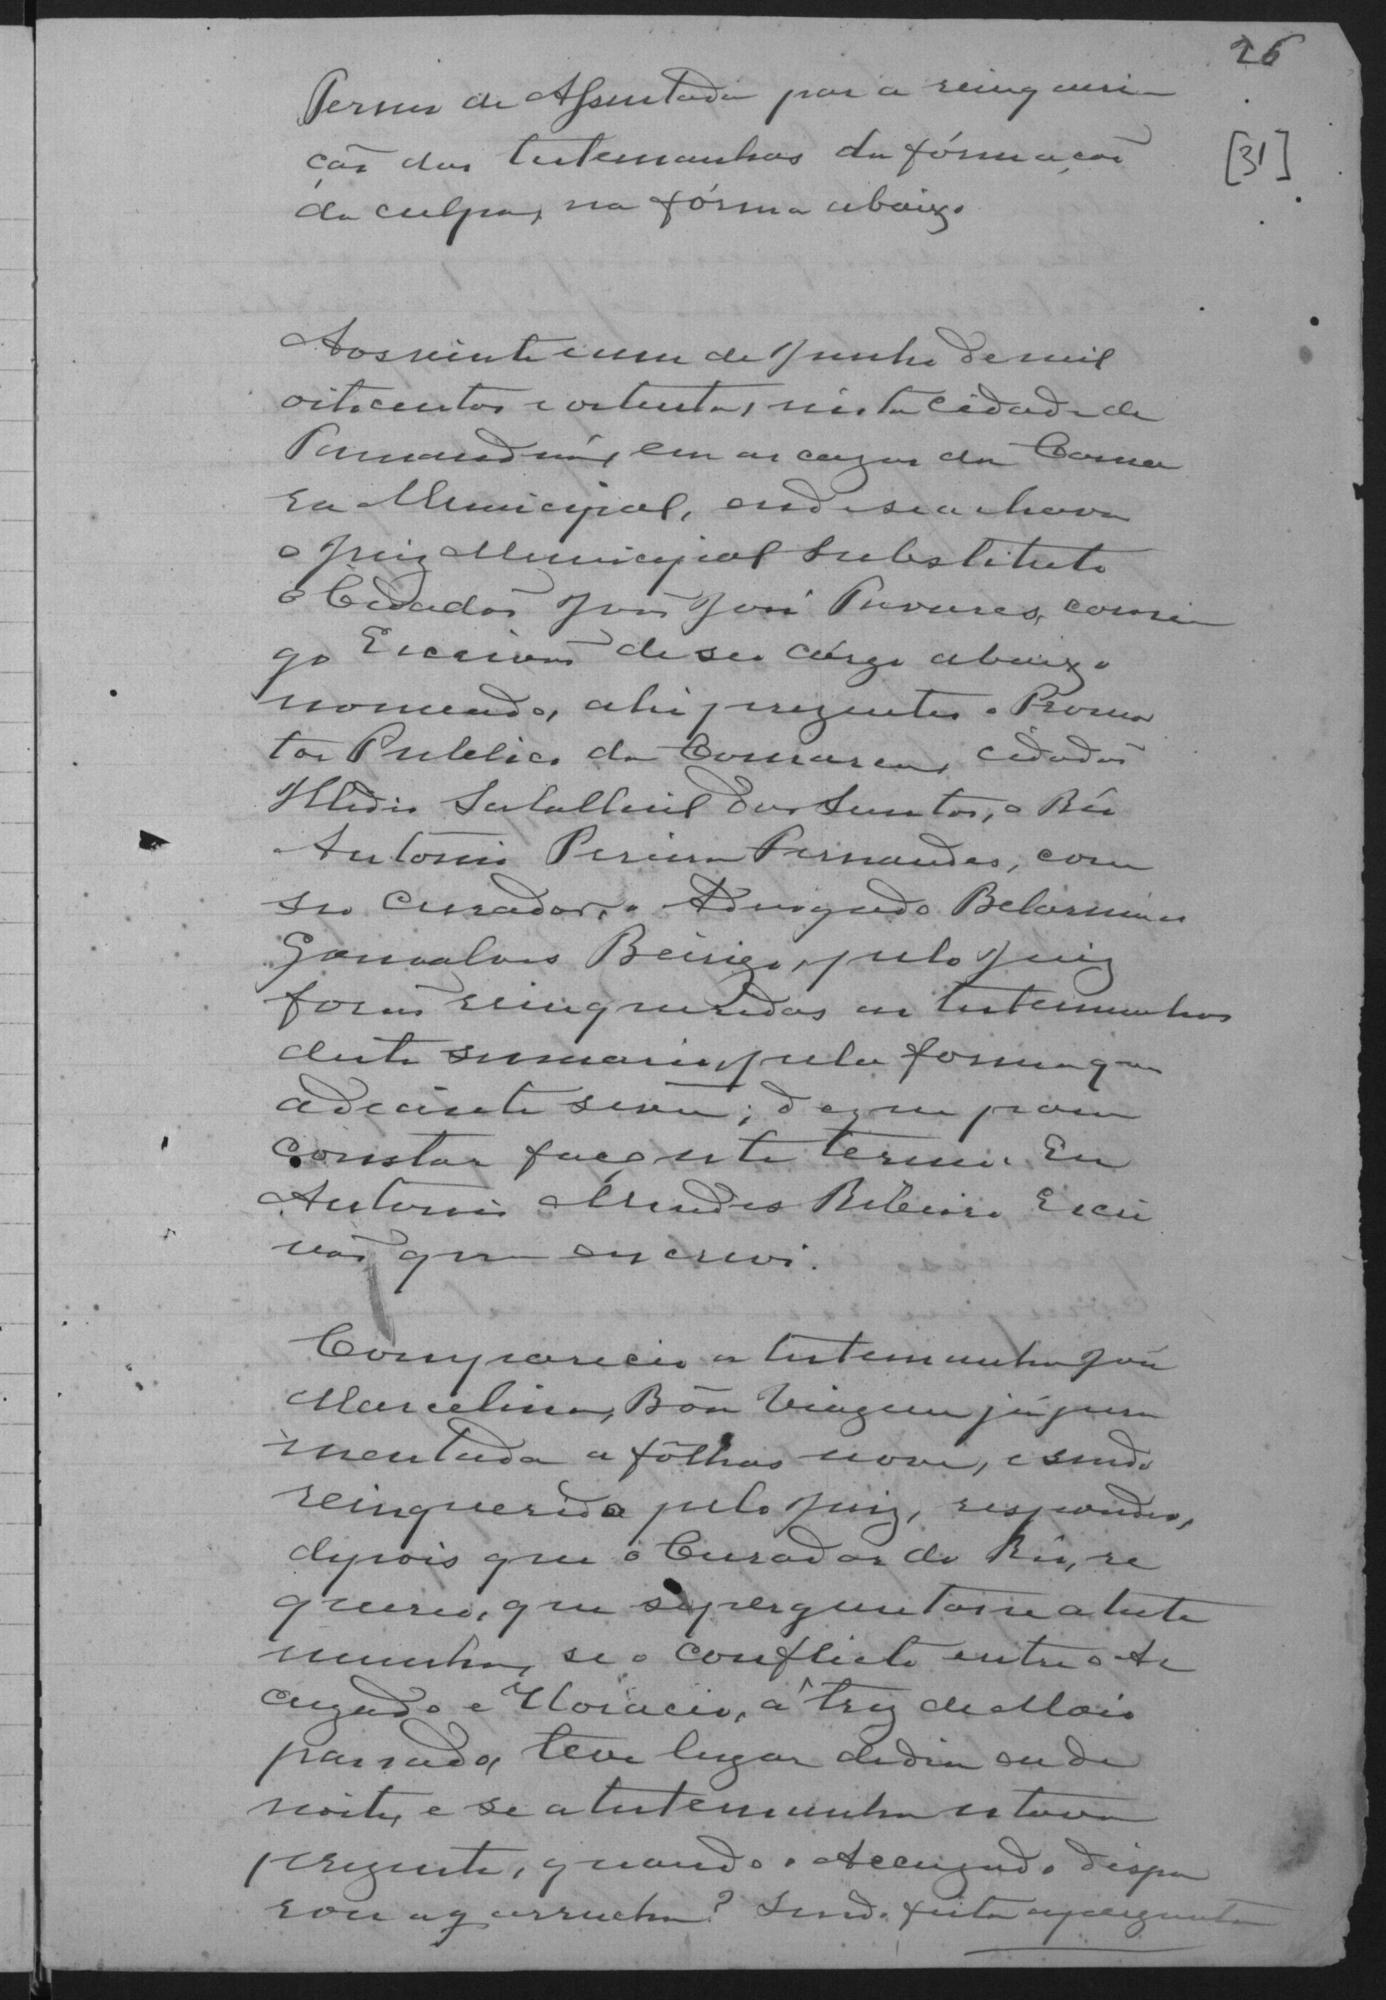 26
[31]
Termo de Assentada para a reinqueri-
ção das testemunhas da fórmação
da culpa, na fórma abaixo.
Aos vinte e um de Junho de mil
oitocentos e oitenta, nesta Cidade de
em as cazas da Cama
ra Municipal, onde se achava
o Juiz Municipal Substituto
o Cidadão João José Tavares, comi
go Escrivão de seo cárgo abaixo
nomeado, ahi prezentes o Promo
tor Publico da Comarca, cidadão
dos Santos, o Réo
Antonio Pereira Fernandes, com
seo curador, o Advogado Belarmino
Gonsalves, pelo Juiz
forão reinqueridas as testemunhas
deste sumario, pela forma que
adeiante se vê; do que para
constar faço este termo. Eu
Antonio Mendes Ribeiro Escri
vão que escrevi.
Compareceo a testemunha João
Marcelino, Bôa Viagem já jura
mentada a fôlhas nove, e sendo
reinquerida pelo Juiz, respondeo,
depois que o Curador do Réo, re
quereo, que se perguntasse a teste
munha, se o conflicto entre o Ac
cuzado e Horacio, á trez de Maio
passado, teve lugar de dia ou de
noite, e se a testemunha estava
prezente, quando o Accuzado dispa
rou a garrucha? Sendo feita a pergunta